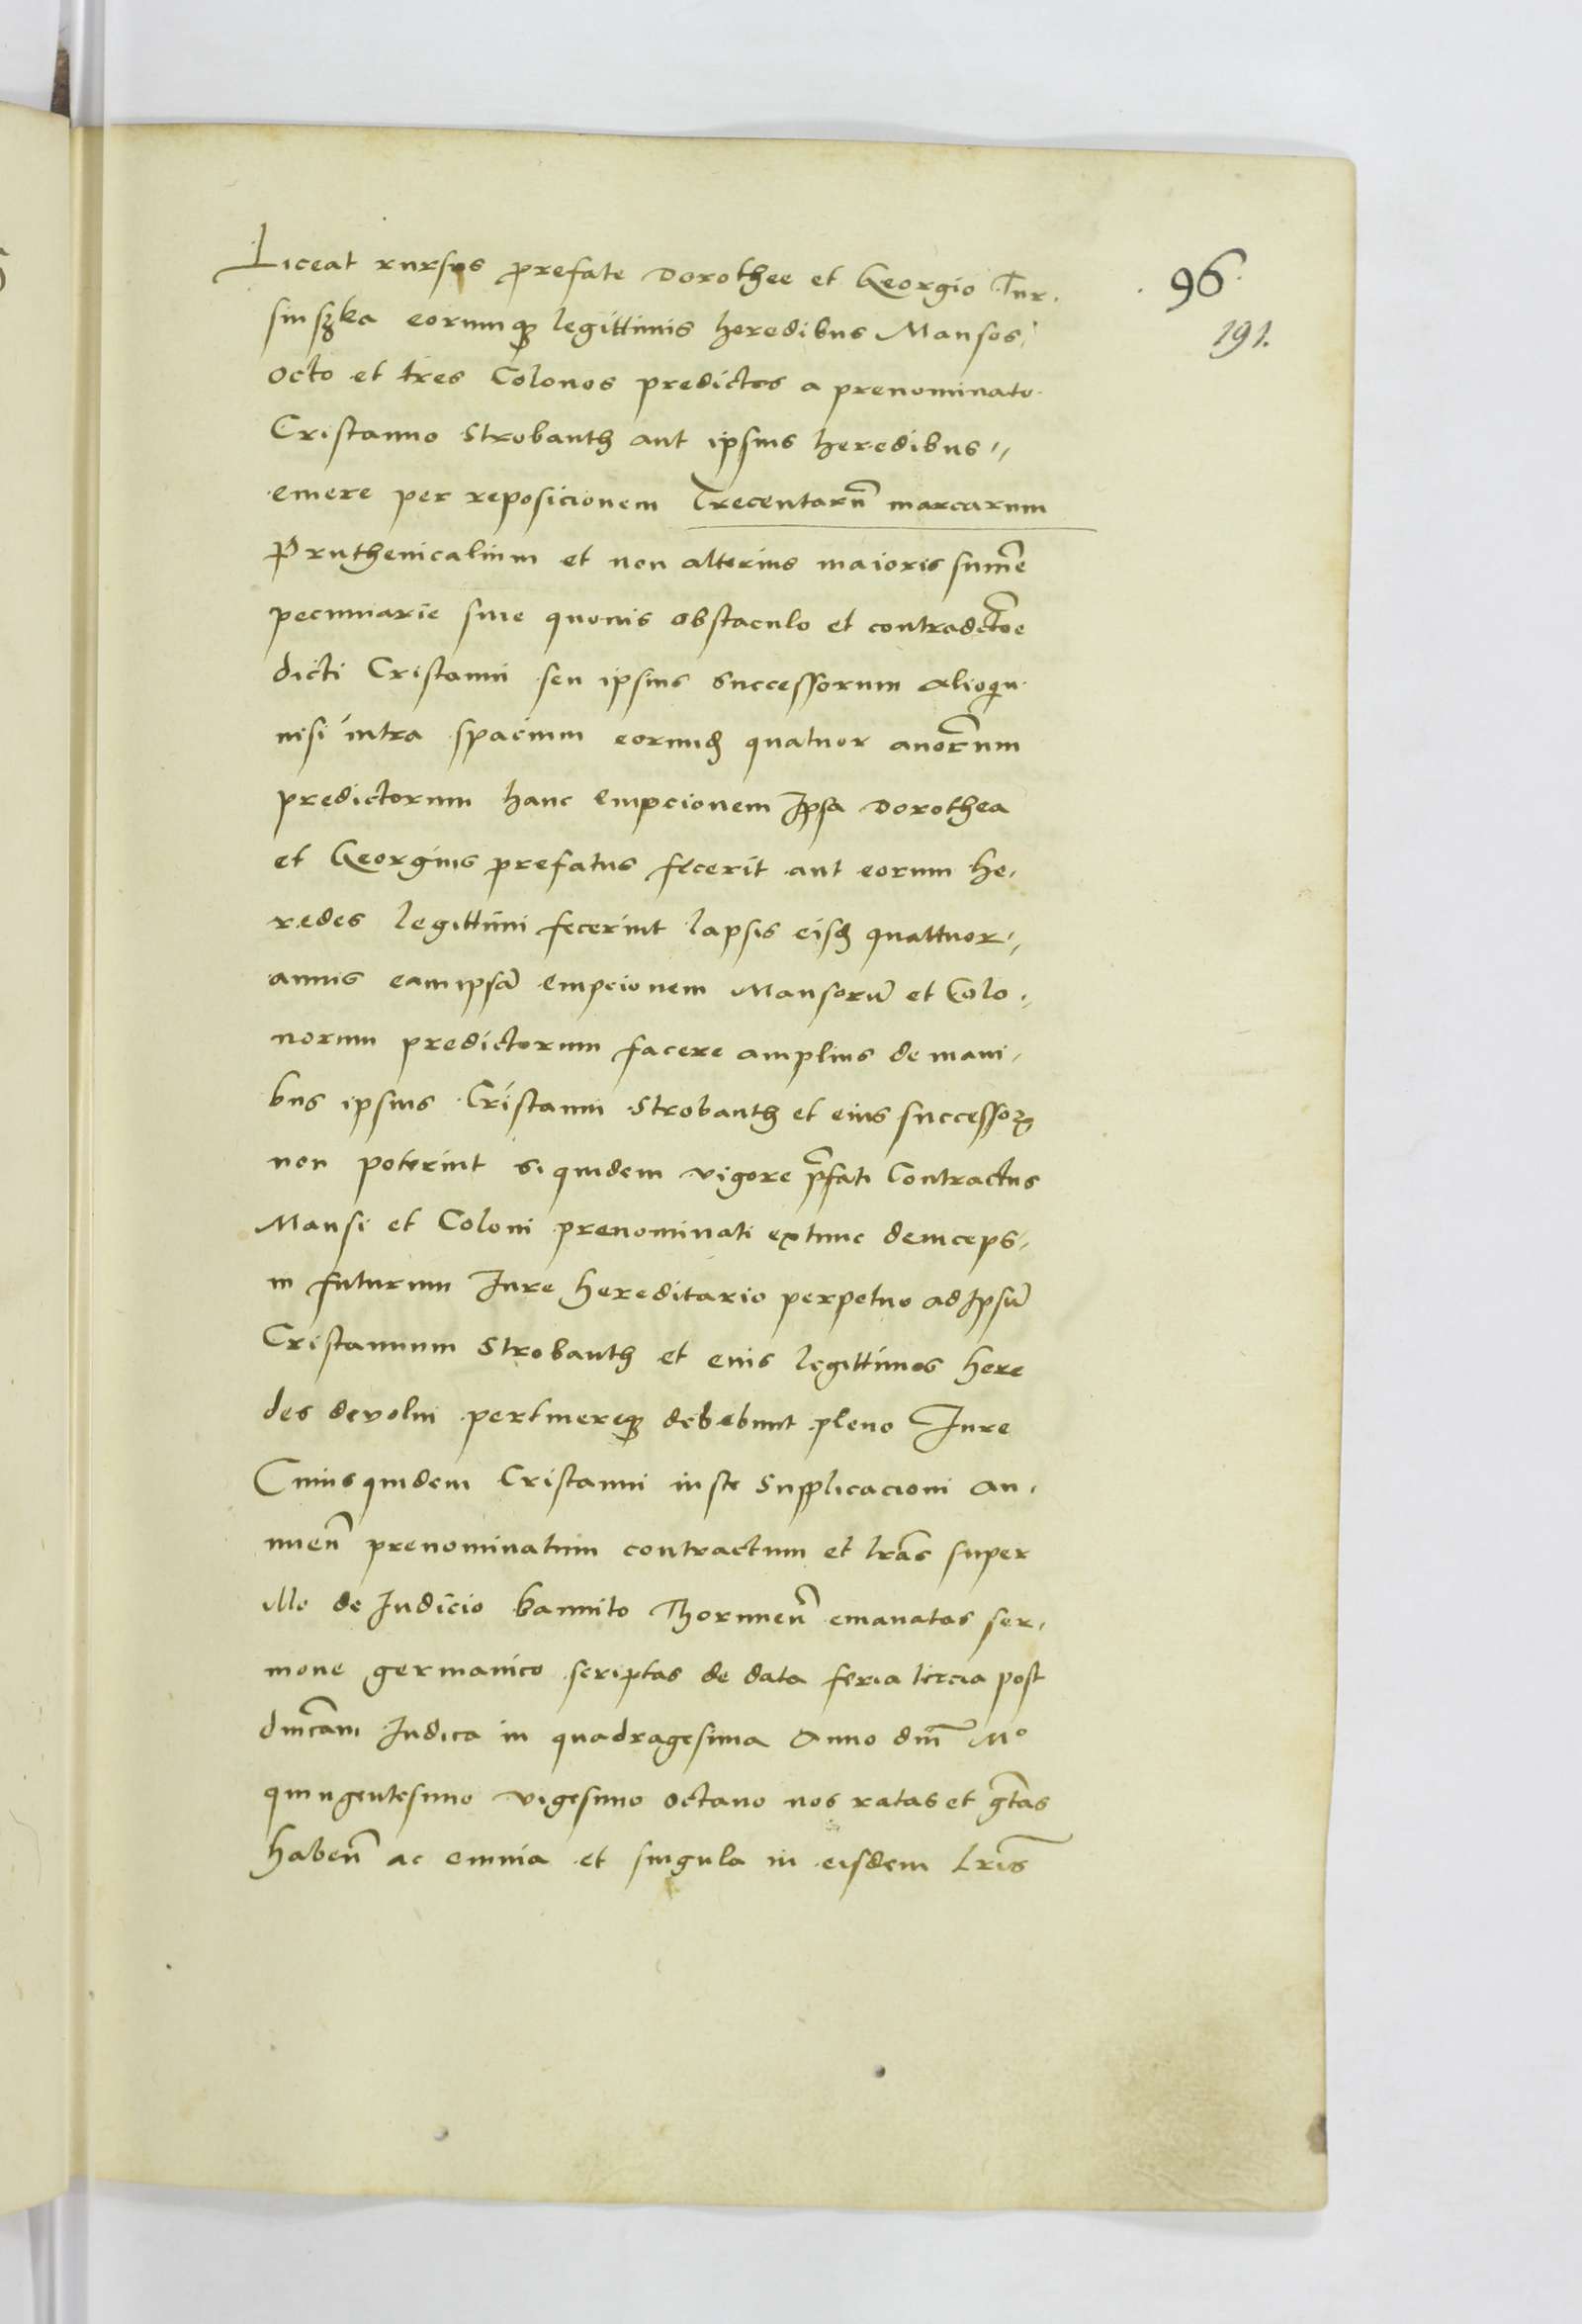 Liceat rursus prefate Dorothee et Georgio Tur.
sinszka eorumqz legittimis heredibus Mansos
Octo et tres Colonos predictos a prenominato
Cristanno Strobanth aut ipsius heredibus
emere per reposicionem Trecentarū marcarum
Pruthenicalium et non alterius maioris sum̃e
pecuniarie sine quouis obstaculo et contradctōe
dicti Cristanni seu ipsius Successorum alioqui
nisi intra spacium eorund quatuor annorum
predictorum hanc empcionem Ipsa Dorothea
et Georgius prefatus fecerit aut eorum he-
redes legittimi fecerint lapsis eisd quattuor
annis eam ipsā empcionem Mansorū et Colo-
norum predictorum facere amplius de mani-
bus ipsius Cristanni Strobanth et eius successoꝝ
non poterint Siquidem vigore p̃fati Contractus
Mansi et Coloni prenominati extunc deinceps
in futurum Iure hereditario perpetuo ad Ipsū
Cristannum Strobanth et eius legittimos here
des devolui pertinereqz debebunt pleno Iure
Cuiusquidem Cristanni iuste Supplicacioni an-
nuen̄ prenominatum contractum et lrās super
illo de Iudicio bannito Thorunen̄ emanatas ser-
mone germanico scriptas de data feria tercia post
dm̃cam Iudica in quadragesima Anno dm̃ Mo
quingentesimo vigesimo octauo nos ratas et grtas
haben̄ ac omnia et singula in eisdem Lris̄
96
191.